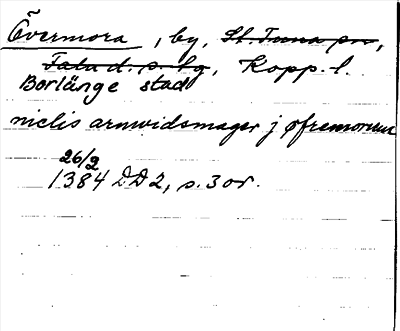 Övermora, by, St. Tuna sn,
Falu d. s. hg, Kopp. l.
Borlänge stad
niclis arnuidsmager j øfremorum
26/2
1384 DD2, s. 3 or.